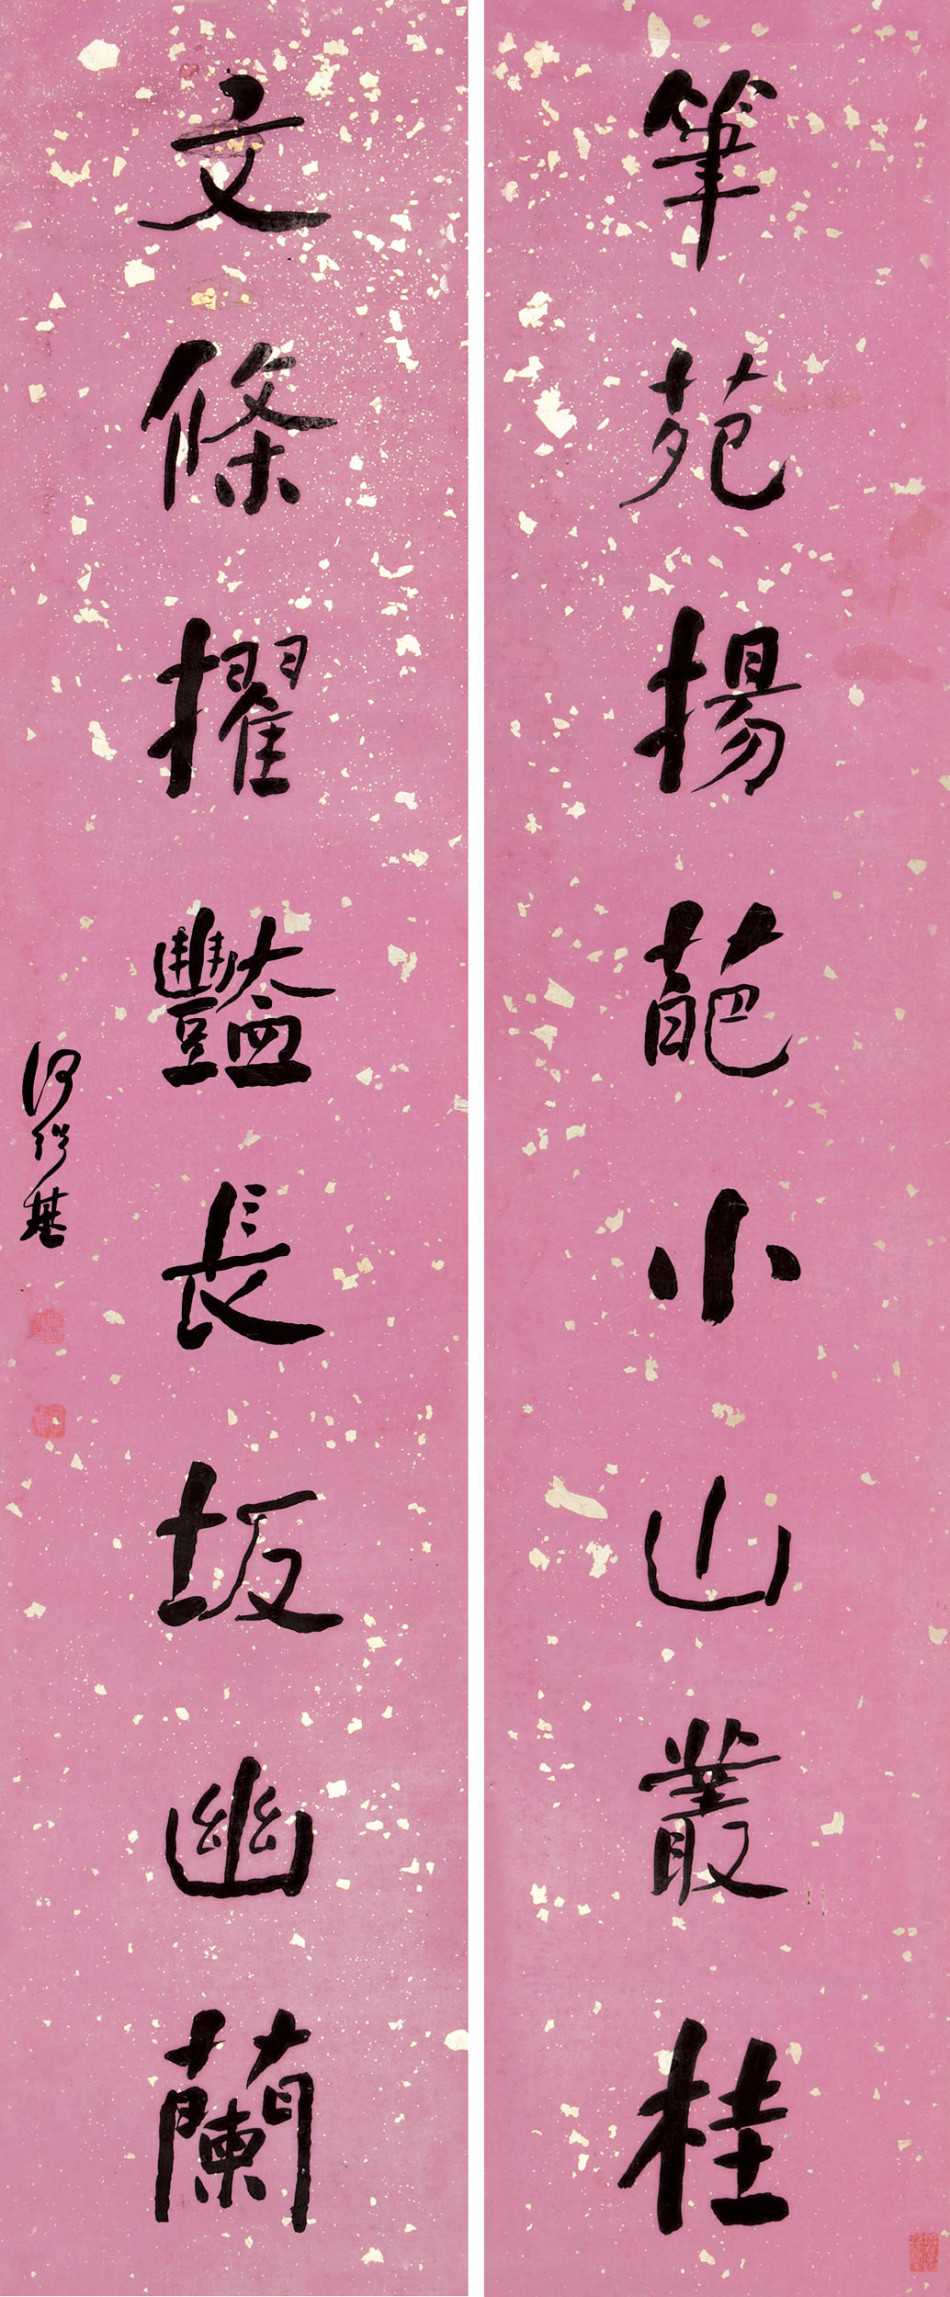 筆苑揚葩小山叢桂
文條擢豔長坂幽蘭
何紹基